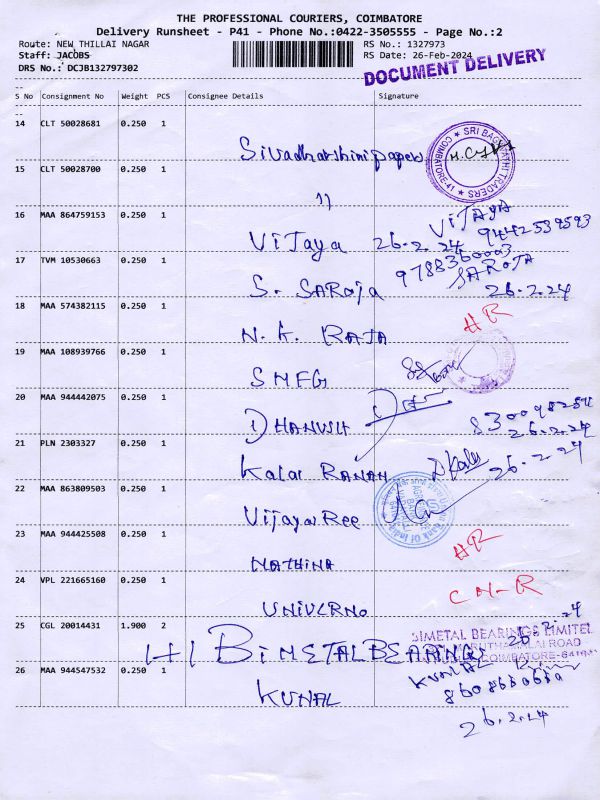 THE PROFESSIONAL COURIERS, COIMBATORE
Delivery Runsheet - P41 - Phone No.:0422-3505555 - Page No.:2
Route: NEW THILLAI NAGAR
RS No.: 1327973
Staff: JACOBS
RS Date: 26-Feb-2024
DRS No.: DCJB132797302
DOCUMENT DELIVERY
S No Consignment No Weight PCS Consignee Details Signature
14 CLT 50028681 0.250 1
Sivadharshini papers
SRI BAGAVATHI TRADERS COIMBATORE-41
15 CLT 50028700 0.250 1
11
16 MAA 864759153 0.250 1
Vijaya 26.2.24 VIJAYA 9442539593
17 TVM 10530663 0.250 1
S. SAROJA 9788360003 SAROJA 26.2.24
18 MAA 574382115 0.250 1
N.K. RAJA HR
19 MAA 108939766 0.250 1
SMFG
20 MAA 944442075 0.250 1
DHANUSH 26.2.24
21 PLN 2303327 0.250 1
Kalai RANAN 26.2.24
22 MAA 863809503 0.250 1
Vijaya Ree
23 MAA 944425508 0.250 1
MATHINA HR
24 VPL 221665160 0.250 1
UNIVERNO CN-R
25 CGL 20014431 1.900 2
1+1 BIMETAL BEARINGS 26.2.24
BIMETAL BEARINGS LIMITED
26 MAA 944547532 0.250 1
KUNAL KUNAL
26.2.24